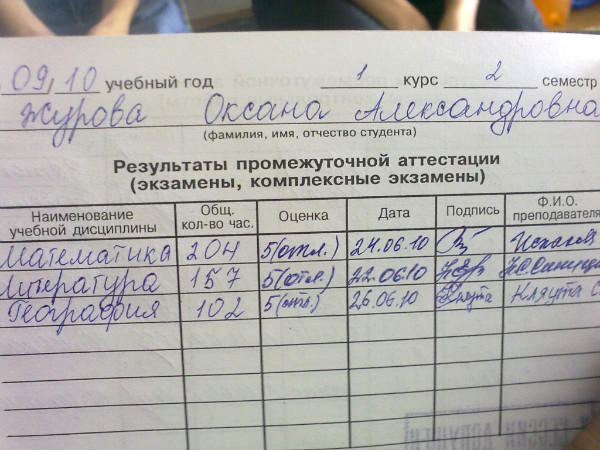 09,10 учебный год 1 курс 2 семестр
Журова Оксана Александровна
(фамилия, имя, отчество студента)
Результаты промежуточной аттестации
(экзамены, комплексные экзамены)
Наименование учебной дисциплины Общ. кол-во час. Оценка Дата Подпись Ф.И.О. преподавателя
Математика 204 5(отл.) 24.06.10
Литература 157 5(отл.) 22.06.10
География 102 5(отл.) 26.06.10 Кляута